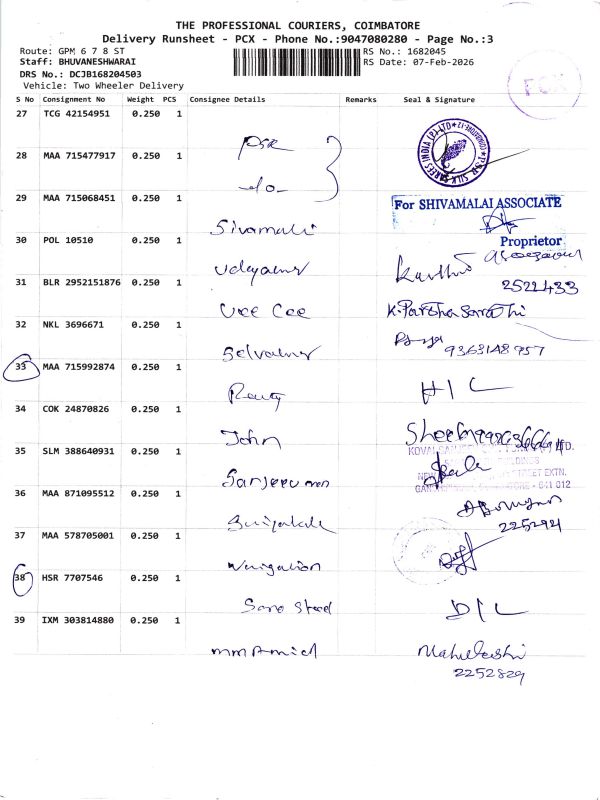 THE PROFESSIONAL COURIERS, COIMBATORE
Delivery Runsheet - PCX - Phone No.:9047080280 - Page No.:3
Route: GPM 6 7 8 ST
RS No.: 1682045
Staff: BHUVANESHWARAI
RS Date: 07-Feb-2026
DRS No.: DCJB168204503
Vehicle: Two Wheeler Delivery
S No Consignment No Weight PCS Consignee Details Remarks Seal & Signature
27 TCG 42154951 0.250 1
PSR
28 MAA 715477917 0.250 1
-do-
29 MAA 715068451 0.250 1
For SHIVAMALAI ASSOCIATE
Proprietor
Sivamali
30 POL 10510 0.250 1
Udayamr
31 BLR 2952151876 0.250 1
2522433
Vee Cee
K. Partha Sarathi
32 NKL 3696671 0.250 1
Selvamr
9363148957
33 MAA 715992874 0.250 1
H I C
34 COK 24870826 0.250 1
John
35 SLM 388640931 0.250 1
Sanjeev
36 MAA 871095512 0.250 1
2252921
37 MAA 578705001 0.250 1
38 HSR 7707546 0.250 1
D I L
39 IXM 303814880 0.250 1
2252829